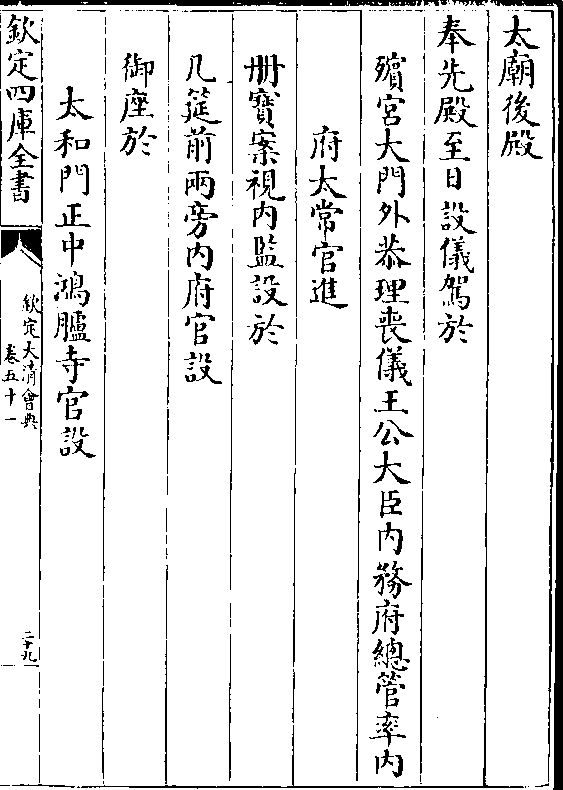 太廟後殿
奉先殿至日設儀駕於
殯宮大門外恭理喪儀王公大臣内務府總管率内
府太常官進
册寶案視内監設於
几筵前兩旁内府官設
御座於
太和門正中鴻臚寺官設
欽定四庫全書
欽定大清會典
卷五十一
二十九